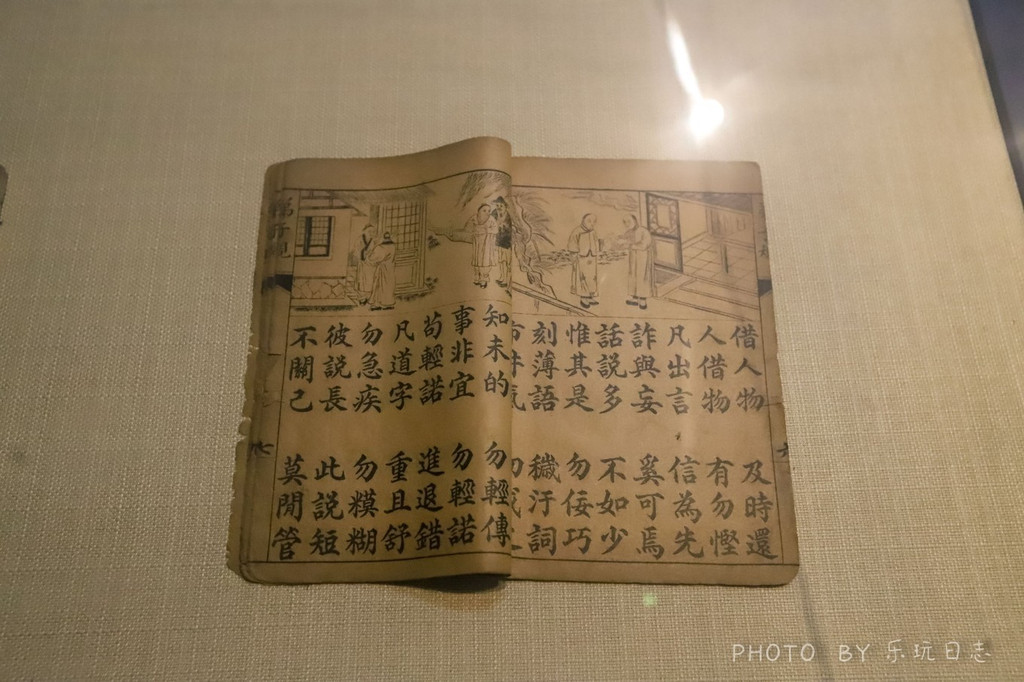 借人物 及時還
人借物 有勿慳
凡出言 信為先
詐與妄 奚可焉
話說多 不如少
惟其是 勿佞巧
刻薄語 穢汙詞
知未的 勿輕傳
事非宜 勿輕諾
苟輕諾 進退錯
凡道字 重且舒
勿急疾 勿糢糊
彼說長 此說短
不關己 莫閒管
七
PHOTO BY 乐玩日志